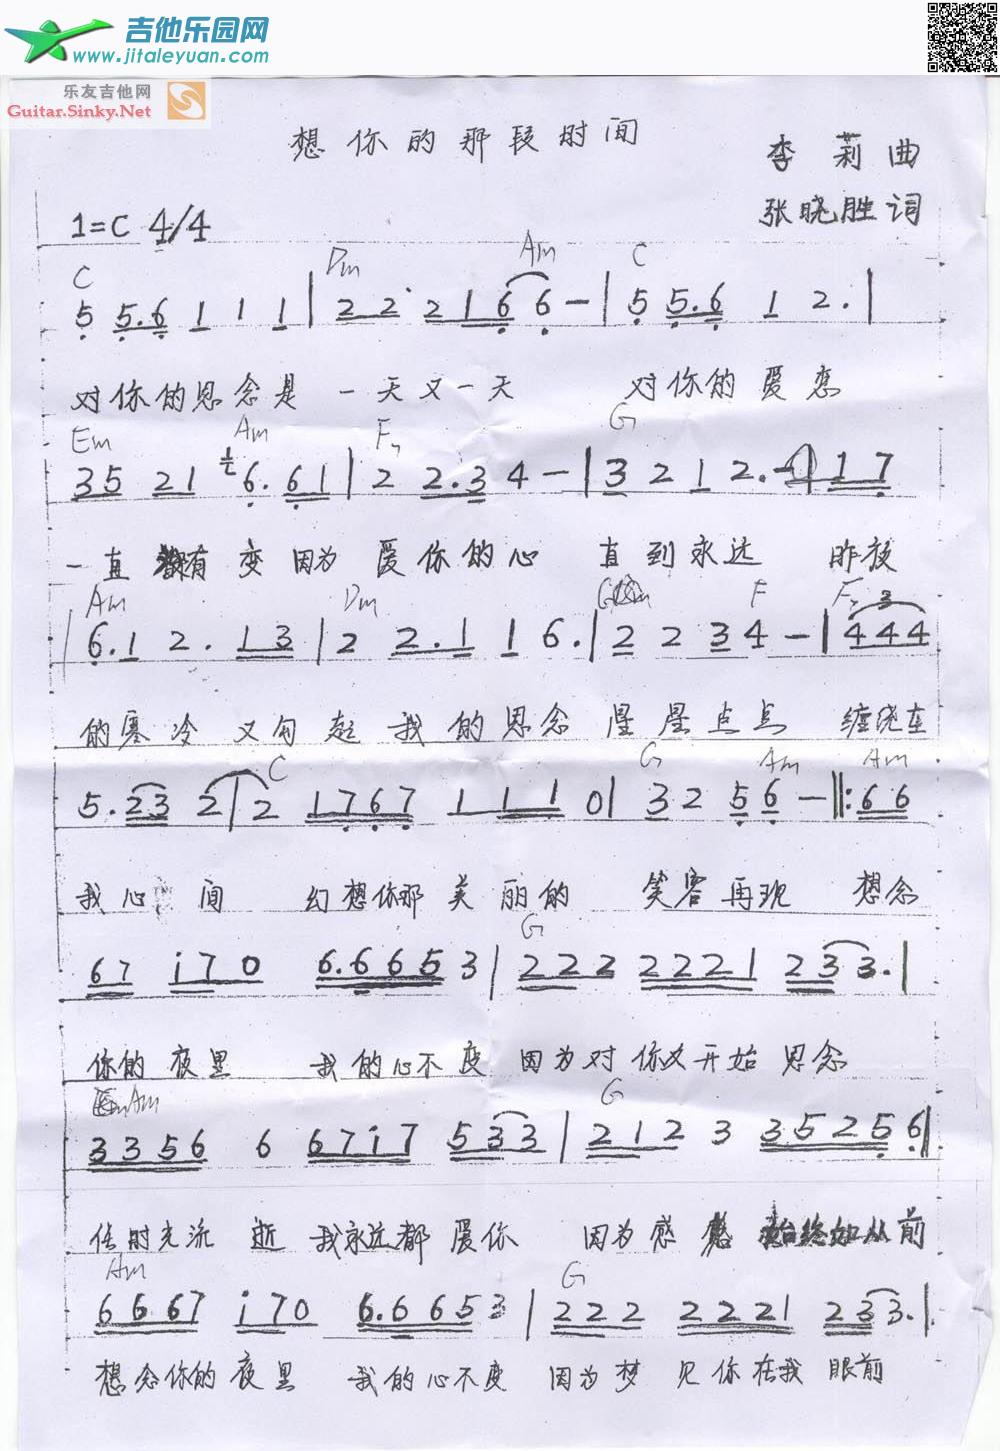 吉他乐园网
www.jitaleyuan.com
乐友吉他网
Guitar.Sinky.Net
想你的那段时间
李莉曲
张晓胜词
1=C 4/4
C Dm Am C
5 5.6 1 1 1 | 2 2· 2 1 6 6 - | 5 5.6 1 2. |
对你的思念是 一天又一天 对你的爱恋
Em Am F G
35 21 6. 61 | 2 2.3 4 - | 3 2 1 2. - | 1 7
一直 有变因为爱你的心 直到永远 昨夜
Am Dm G F F 3
| 6.1 2. 13 | 2 2.1 1 6. | 2 2 3 4 - | 444
的寒冷 又勾起我的思念 星星点点 缠绕在
C G Am Am
5. 23 2 | 2 1767 1 1 1 0 | 3 2 5 6 - ‖: 66
我心间 幻想你那美丽的 笑容再现 想念
G
67 i70 6.665 3 | 222 2221 233. |
你的夜里 我的心不变 因为对你又开始思念
Am G
3356 6 67i7 533 | 212 3 3525 6 ‖
任时光流逝 我永远都爱你 因为感 始终如从前
Am G
6667 i70 6.665 3 | 222 2221 233. |
想念你的夜里 我的心不变 因为梦见你在我眼前